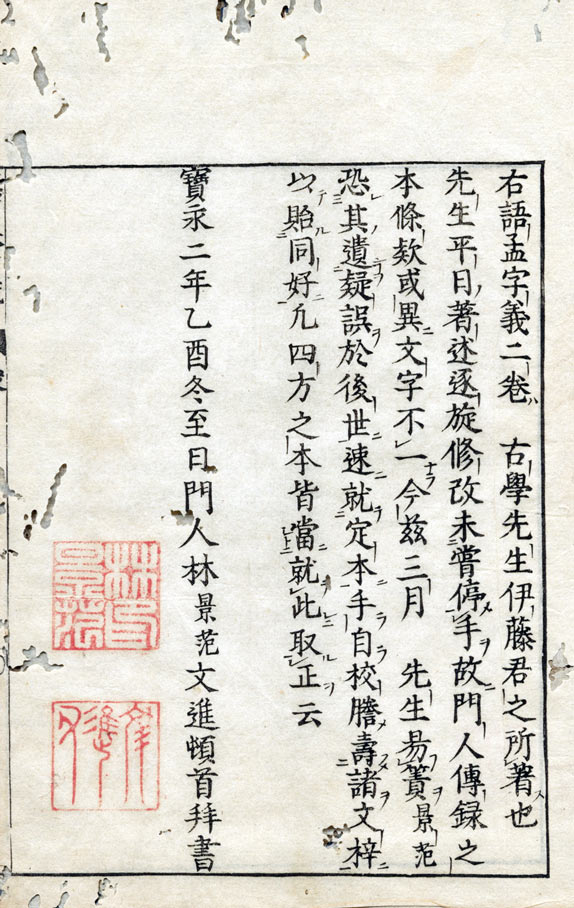 右語孟字義二卷　古學先生伊藤君之所著也
先生平日著述逐旋修改未嘗停手故門人傳録之
本條欵或異文字不一今兹三月　先生易簀景范
恐其遺疑誤於後世速就定本手自校謄壽諸文梓
以貽同好凢四方之本皆當就此取正云
寶永二年乙酉冬至日門人林景范文進頓首拜書
林氏景范
文進